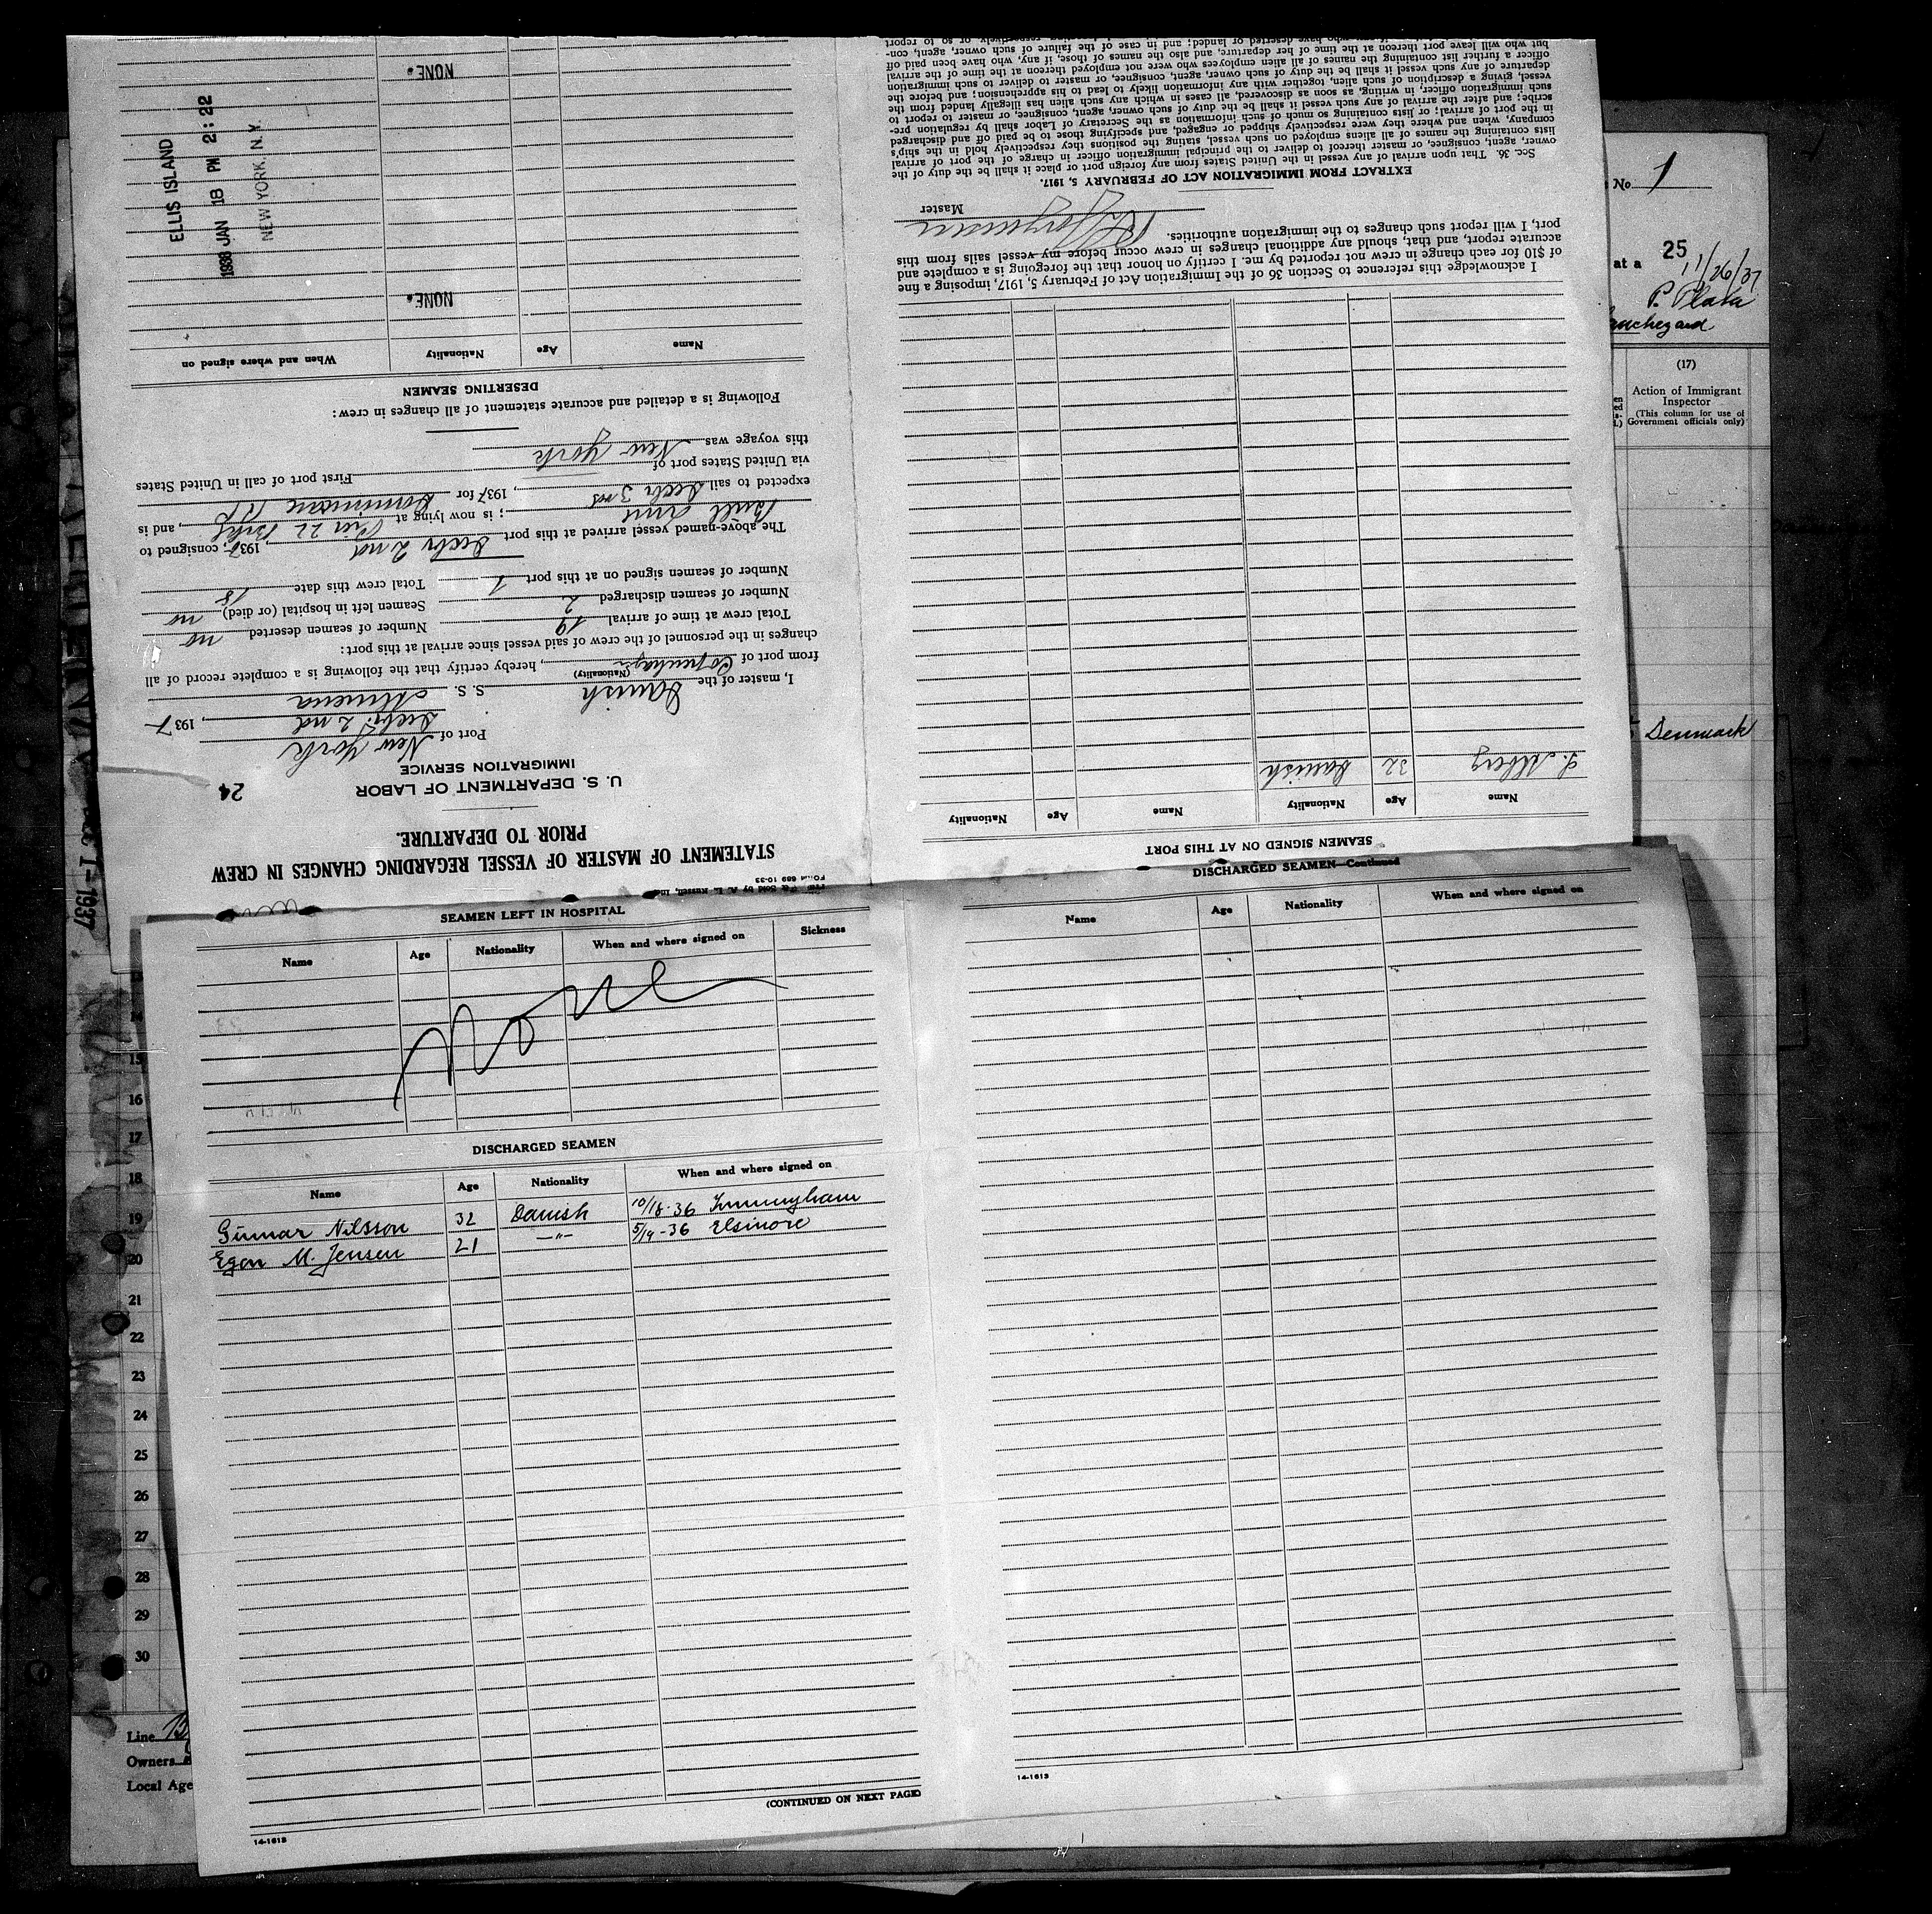 STATEMENT OF MASTER OF VESSEL REGARDING CHANGES IN CREW
PRIOR TO DEPARTURE.
U. S. DEPARTMENT OF LABOR
24
IMMIGRATION SERVICE
Port of New York
Decbr. 2nd, 1937
I, master of the Danish S. S.
(Nationality)
from port of Copenhagen, hereby certify that the following is a complete record of all
changes in the personnel of the crew of said vessel since arrival at this port:
Total crew at time of arrival 19 Number of seamen deserted no
Number of seamen discharged 2 Seamen left in hospital (or died) no
Number of seamen signed on at this port 1 Total crew this date 18
The above-named vessel arrived at this port Decbr 2nd 1937, consigned to
; is now lying at Pier 22, and is
expected to sail Decbr 3rd, 1937 for
via United States port of First port of call in United States
this voyage was New York
Following is a detailed and accurate statement of all changes in crew:
DESERTING SEAMEN
Name Age Nationality When and where signed on
NONE.
NONE.
ELLIS ISLAND
1938 JAN 18 PM 2:22
NEW YORK, N.Y.
SEAMEN SIGNED ON AT THIS PORT
Name Age Nationality Name Age Nationality
32 Danish
I acknowledge this reference to Section 36 of the Immigration Act of February 5, 1917, imposing a fine
of $10 for each change in crew not reported by me. I certify on honor that the foregoing is a complete and
accurate report, and that, should any additional changes in crew occur before my vessel sails from this
port, I will report such changes to the immigration authorities.
Master
EXTRACT FROM IMMIGRATION ACT OF FEBRUARY 5, 1917.
Sec. 36. That upon arrival of any vessel in the United States from any foreign port or place it shall be the duty of the
owner, agent, consignee, or master thereof to deliver to the principal immigration officer in charge of the port of arrival
lists containing the names of all aliens employed on such vessel, stating the positions they respectively hold in the ship's
company, when and where they were respectively shipped or engaged, and specifying those to be paid off and discharged
in the port of arrival; or lists containing so much of such information as the Secretary of Labor shall by regulation pre-
scribe; and after the arrival of any such vessel it shall be the duty of such owner, agent, consignee, or master to report to
such immigration officer, in writing, as soon as discovered, all cases in which any such alien has illegally landed from the
vessel, giving a description of such alien, together with any information likely to lead to his apprehension; and before the
departure of any such vessel it shall be the duty of such owner, agent, consignee, or master to deliver to such immigration
officer a further list containing the names of all alien employees who were not employed thereon at the time of the arrival
but who will leave port thereon at the time of her departure, and also the names of those, if any, who have been paid off
No 1
at a 25
11/26/37
P. Plata
(17)
Action of Immigrant
Inspector
(This column for use of
Government officials only)
Denmark
SEAMEN LEFT IN HOSPITAL
Name Age Nationality When and where signed on Sickness
None
DISCHARGED SEAMEN
Name Age Nationality When and where signed on
Gunnar Nilsson 32 Danish 10/18-36 Immingham
Egon M. Jensen 21 —"— 5/19-36 Elsinore
(CONTINUED ON NEXT PAGE)
14-1613
DISCHARGED SEAMEN—Continued
Name Age Nationality When and where signed on
14-1613
15
16
17
18
19
20
21
22
23
24
25
26
27
28
29
30
Line
Owners
Local Age